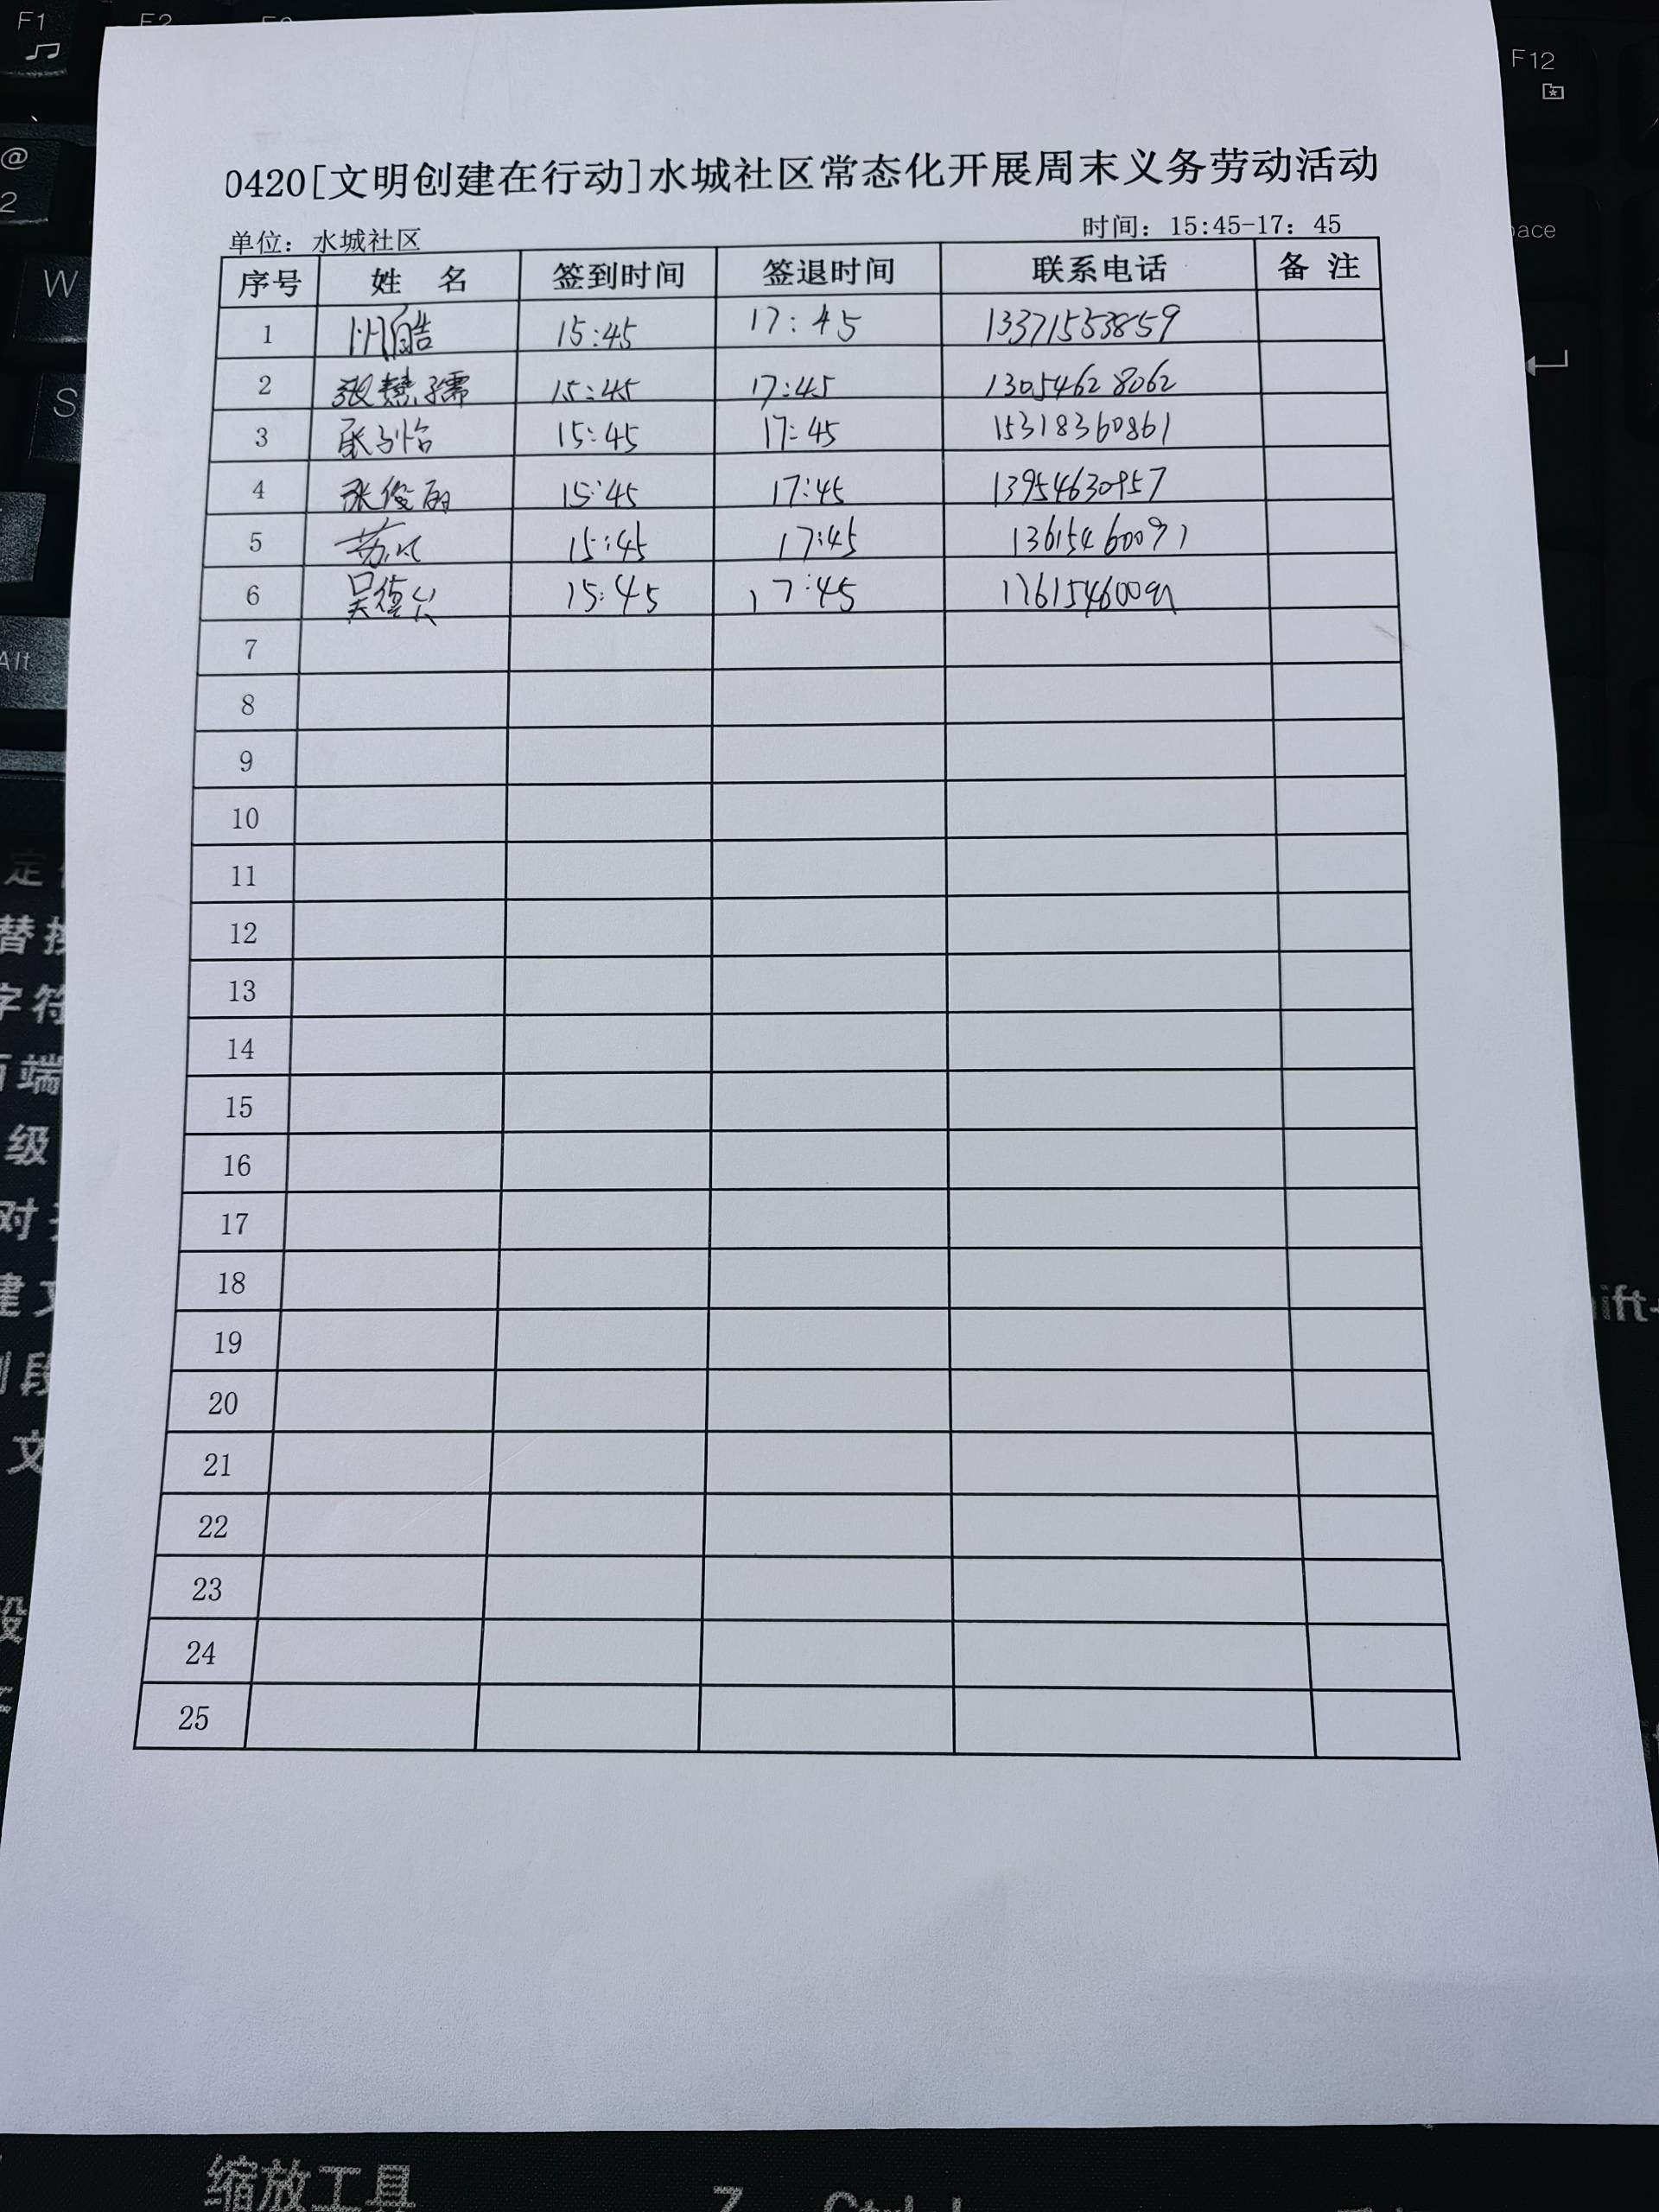 F1
F2
F12
@
2
W
S
Alt
0420[文明创建在行动]水城社区常态化开展周末义务劳动活动
单位：水城社区 时间：15:45-17：45
序号 姓 名 签到时间 签退时间 联系电话 备 注
1 15:45 17:45 13371553859
2 张慧孺 15:45 17:45 13054628062
3 15:45 17:45 15318360861
4 张俊丽 15:45 17:45 13954630957
5 15:45 17:45 13615460091
6 吴德公 15:45 17:45
7
8
9
10
11
12
13
14
15
16
17
18
19
20
21
22
23
24
25
缩放工具 Z